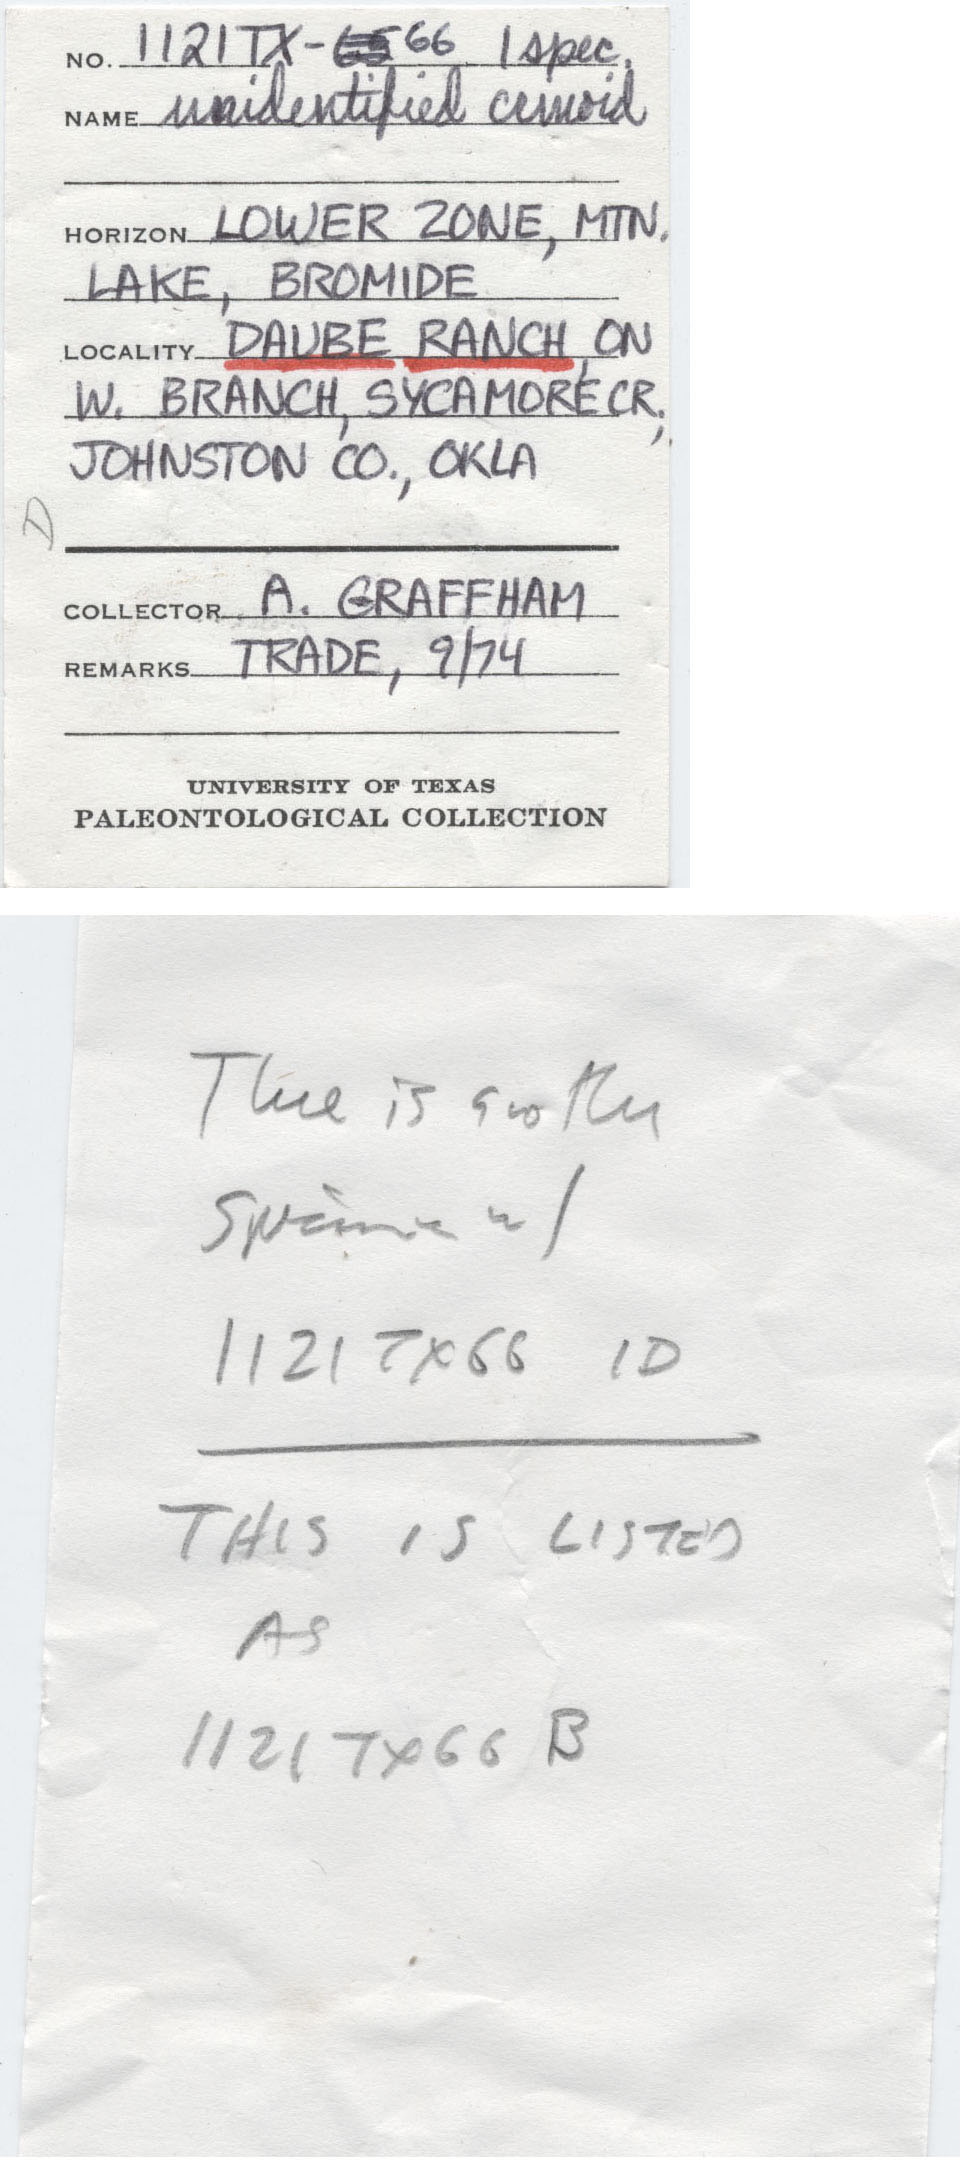 NO. 1121TX-66 1 spec.
NAME unidentified crinoid
HORIZON LOWER ZONE, MTN.
LAKE, BROMIDE
LOCALITY DAUBE RANCH, ON
W. BRANCH, SYCAMORE CR.,
JOHNSTON CO., OKLA
D
COLLECTOR A. GRAFFHAM
REMARKS TRADE, 9/74
UNIVERSITY OF TEXAS
PALEONTOLOGICAL COLLECTION
There is another
specimen w/
1121TX66 ID
THIS IS LISTED
AS
1121TX66 B